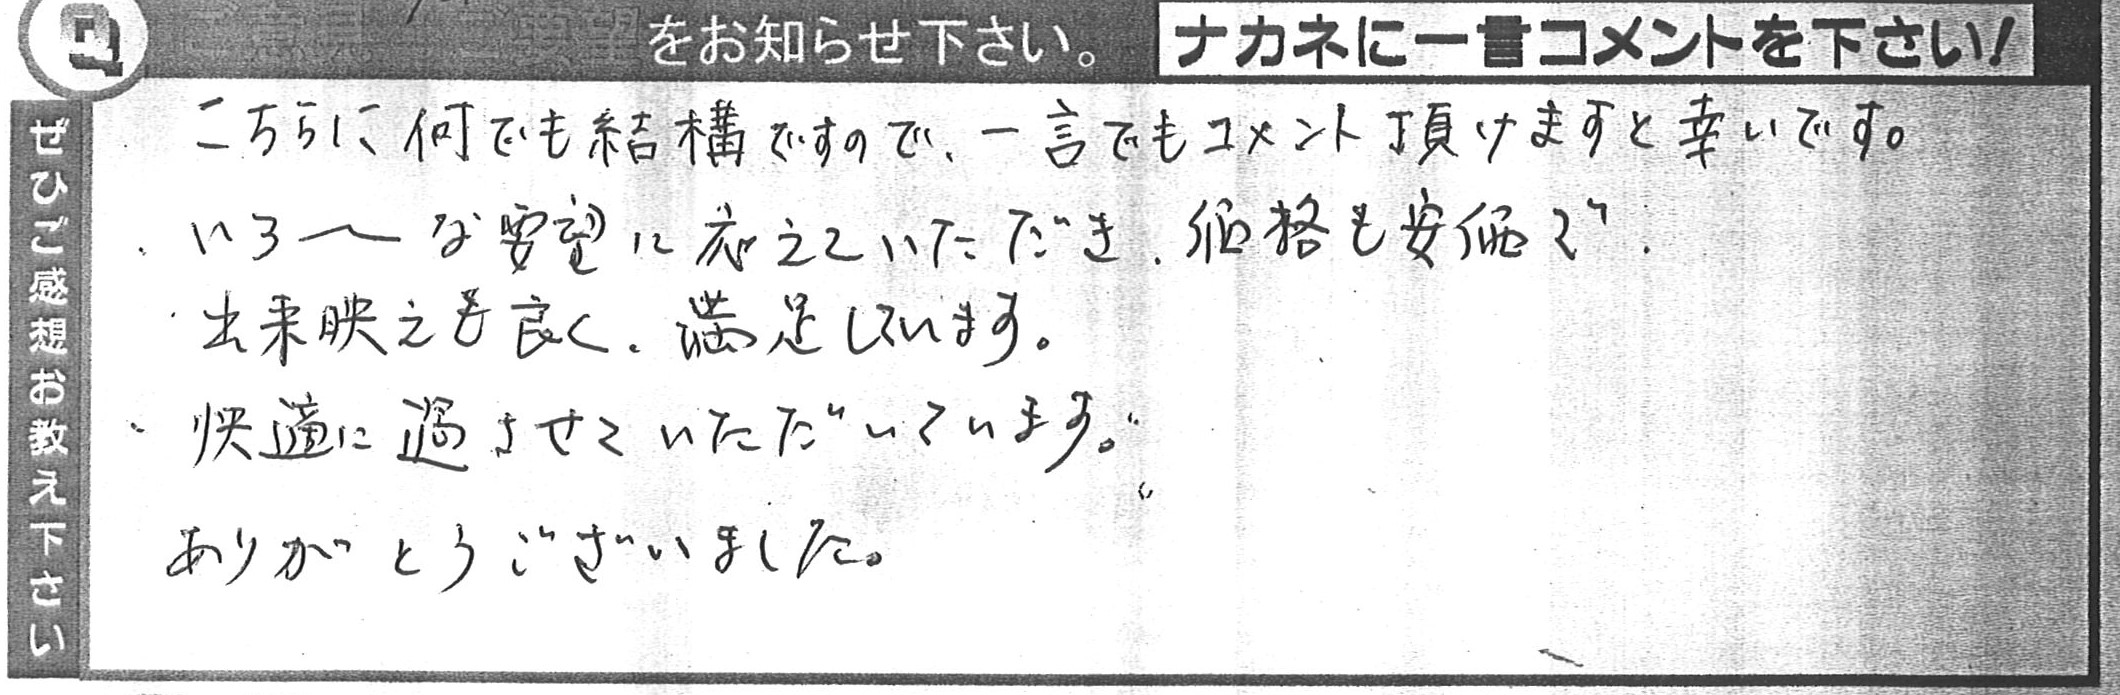 Q ご意見・ご要望をお知らせ下さい。 ナカネに一言コメントを下さい!
ぜひご感想お教え下さい
こちらに何でも結構ですので、一言でもコメント頂けますと幸いです。
・いろ〜な要望に応えていただき、価格も安価で、
・出来映えも良く、満足しています。
・快適に過させていただいています。
ありがとうございました。